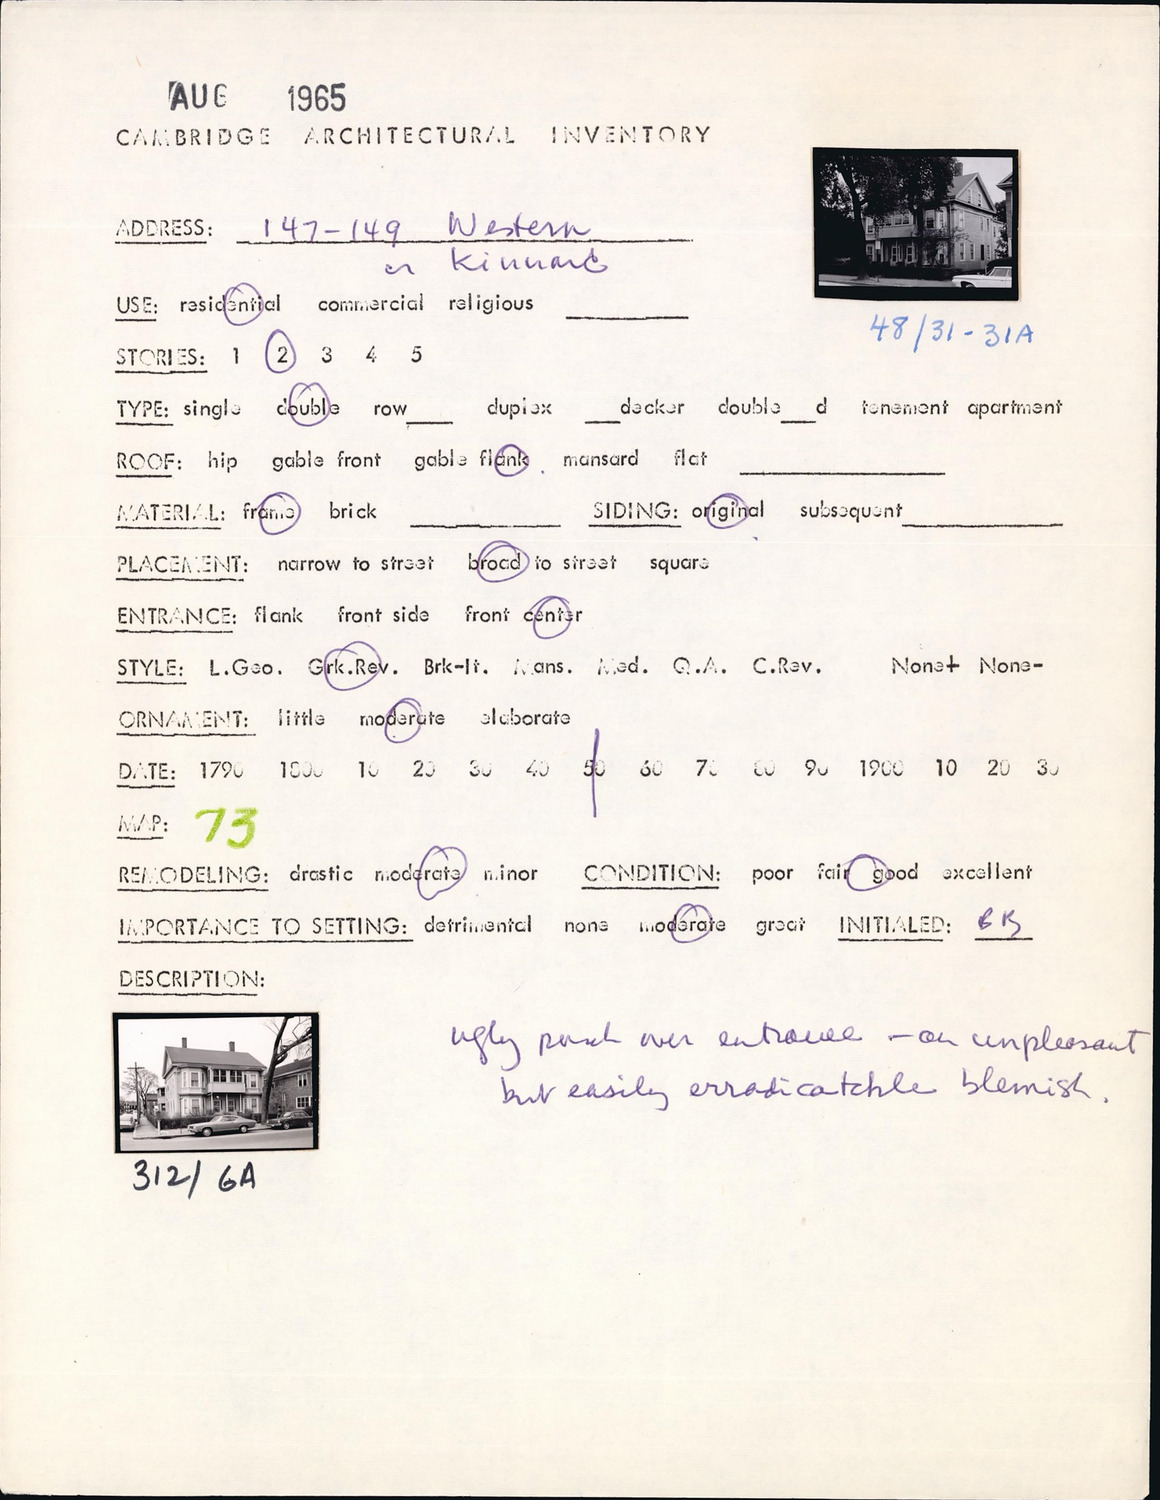 AUG 1965
CAMBRIDGE ARCHITECTURAL INVENTORY
ADDRESS: 147-149 Western
cr Kinnard
USE: residential commercial religious
48/31-31A
STORIES: 1 2 3 4 5
TYPE: single double row___ duplex ___decker double___d tenement apartment
ROOF: hip gable front gable flank mansard flat
MATERIAL: frame brick SIDING: original subsequent
PLACEMENT: narrow to street broad to street square
ENTRANCE: flank front side front center
STYLE: L.Geo. Grk.Rev. Brk-It. Mans. Med. Q.A. C.Rev. None+ None-
ORNAMENT: little moderate elaborate
DATE: 1790 1800 10 20 30 40 50 60 70 80 90 1900 10 20 30
MAP: 73
REMODELING: drastic moderate minor CONDITION: poor fair good excellent
IMPORTANCE TO SETTING: detrimental none moderate great INITIALED: BB
DESCRIPTION:
ugly porch over entrance - an unpleasant
but easily erradicatable blemish.
312/6A